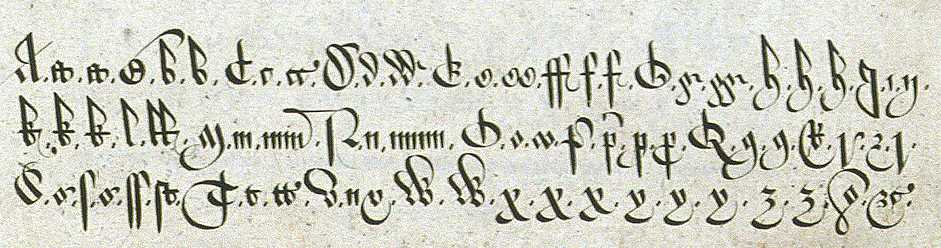 A.a.a.B.b.b.C.c.cc.D.d.dd.E.e.ee.ff.f.f.G.g.gg.h.h.h.J.i.y.
k.k.k.l.ll.M.m.mm.N.n.nn.O.o.o.P.p.p.p.Q.q.q.R.r.r.r.
S.s.s.s.ss.st.T.t.tt.V.u.v.W.W.x.x.x.y.y.y.z.z.&.&c.